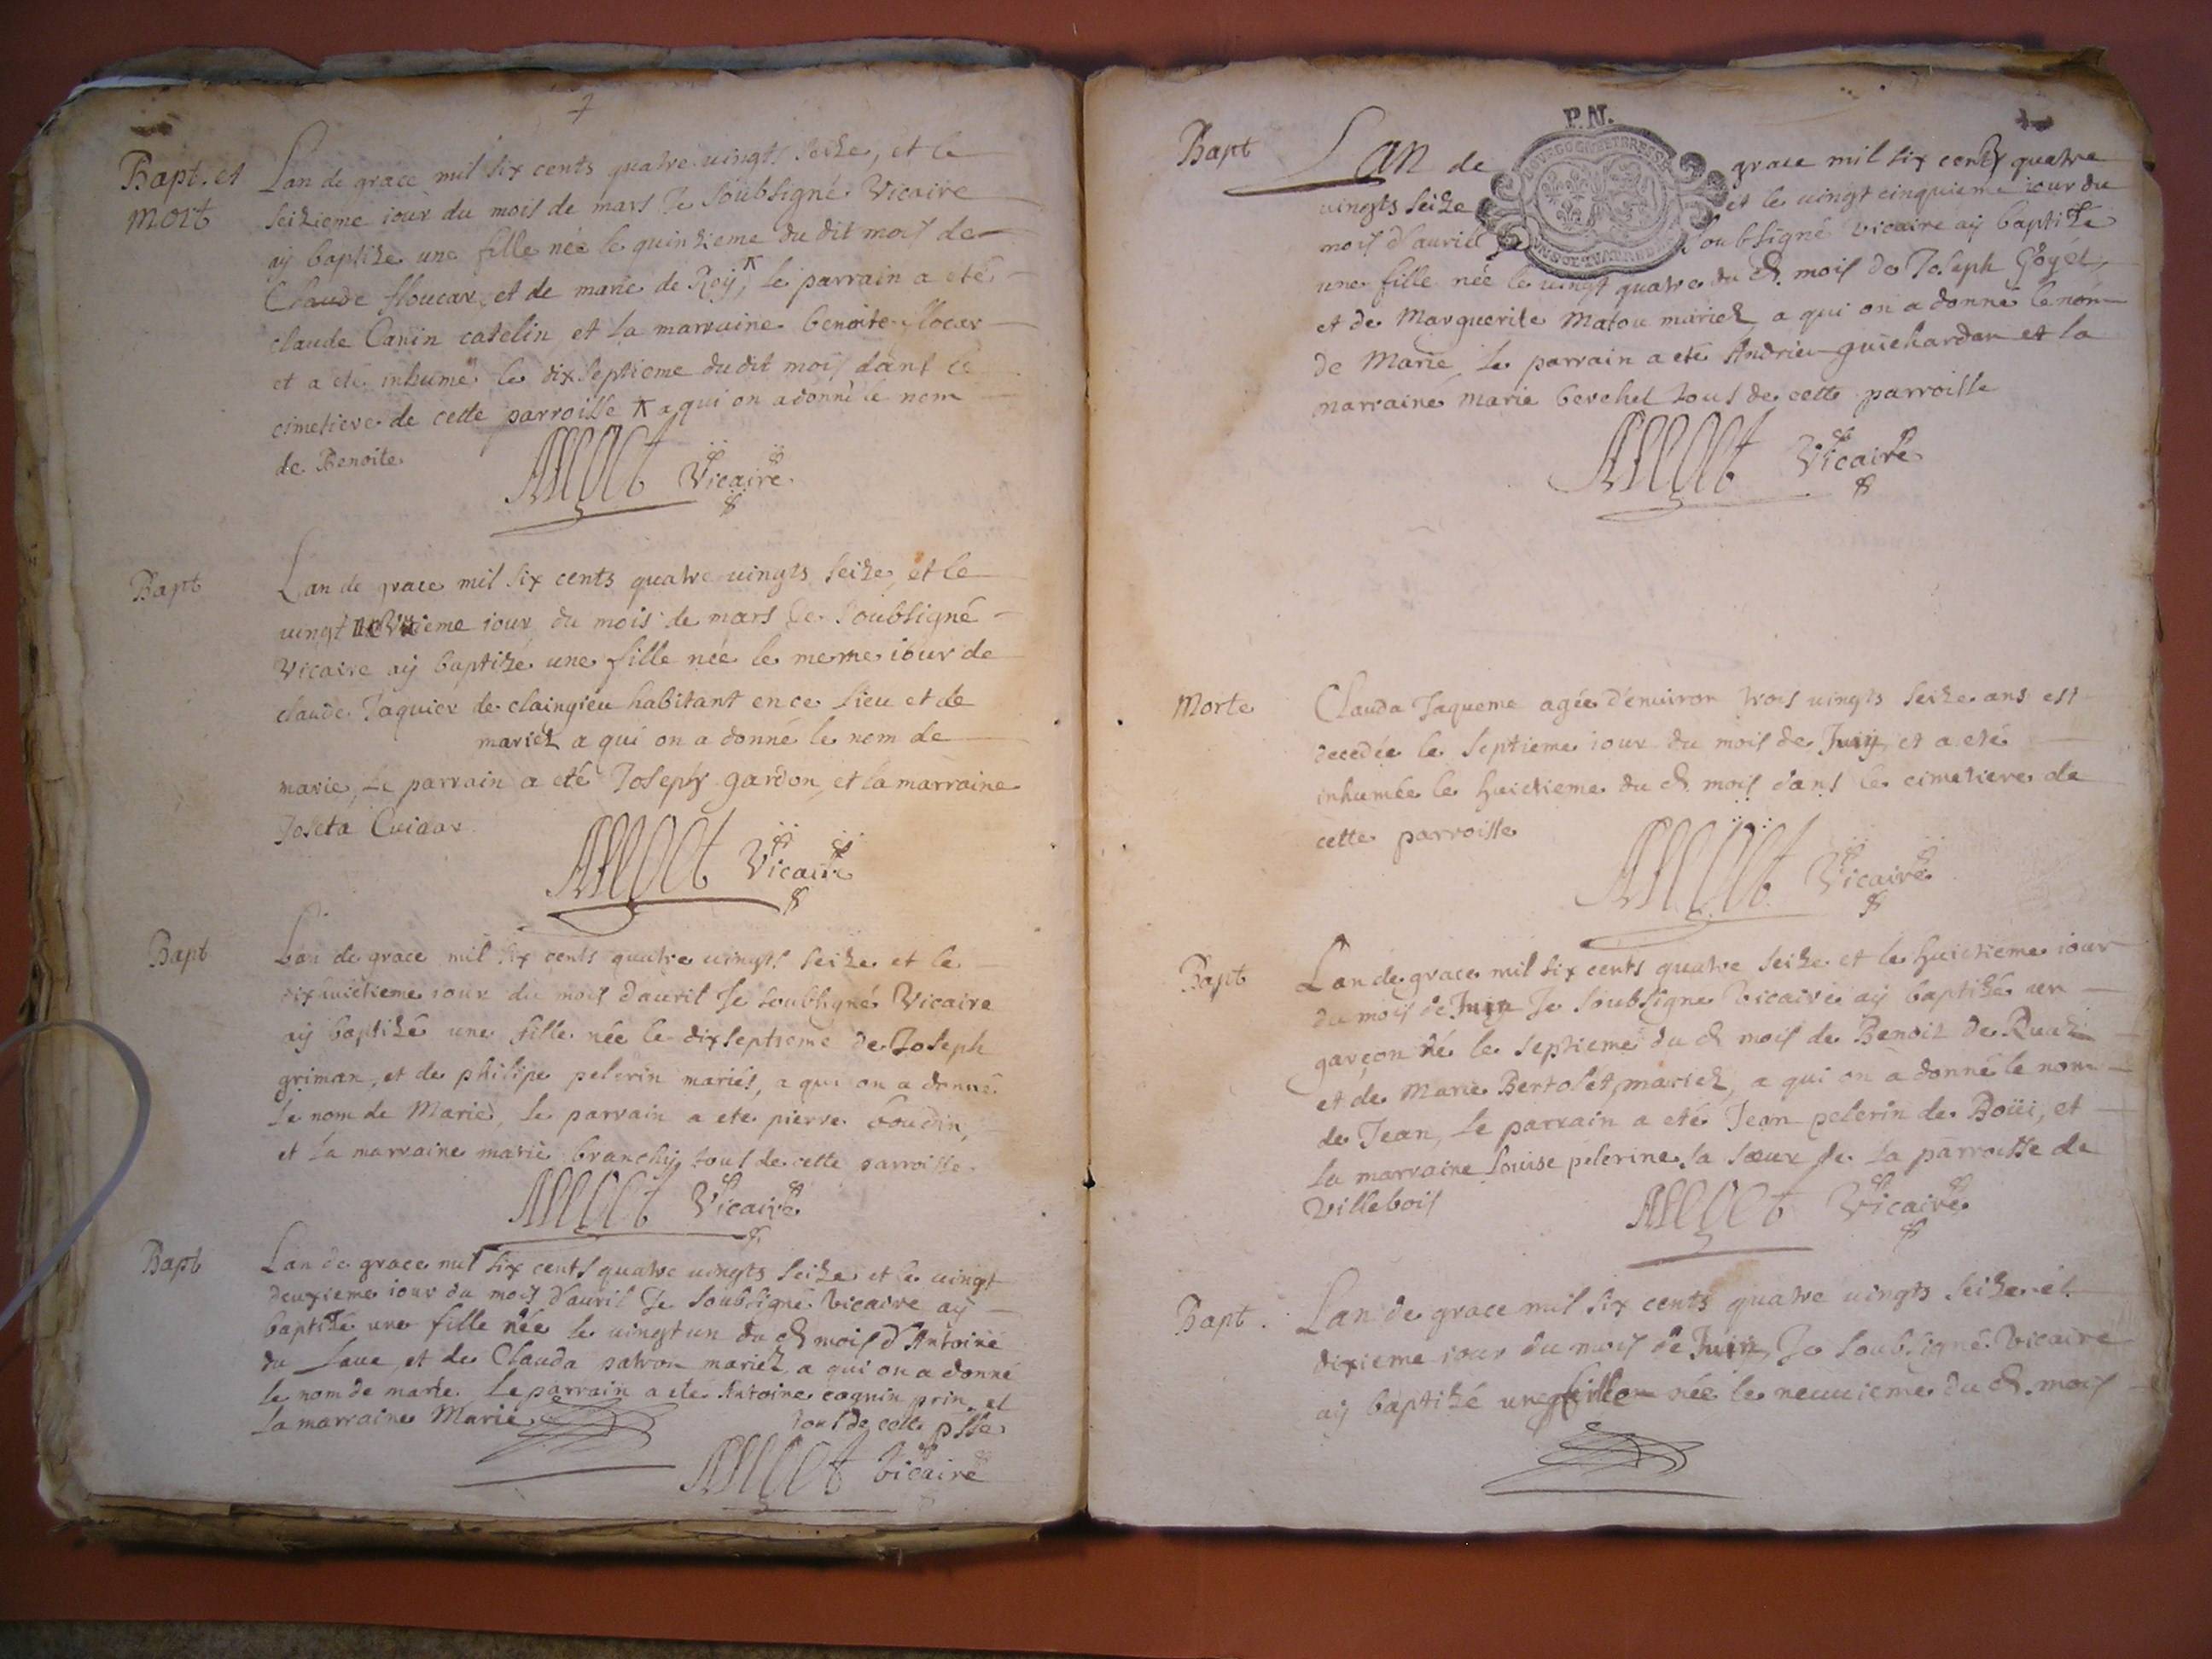 Bapt. et
mort
Lan de grace mil six cents quatre uingts seize, et le
seizieme iour du mois de mars Je Soubsigné Vicaire
aÿ baptizé une fille née le quinzieme du dit mois de
Claude floucar et de marie de Roÿ, le parrain a eté
claude Canin catelin et la marraine benoite flocar
et a eté inhumé le dix septieme dudit mois dans le
cimetiere de cette parroisse a qui on a donné le nom
de Benoite
Vicaire
Bapt
Lan de grace mil six cents quatre uingts seize, et le
uingt iour du mois de mars Je Soubsigné
Vicaire aÿ baptizé une fille née le meme iour de
claude Jaquier de claingieu habitant en ce lieu et de
mariez a qui on a donné le nom de
marie, Le parrain a eté Joseph gardon, et la marraine
Joseta
Vicaire
Bapt
Lan de grace mil six cents quatre uingts seize et le
dixhuictieme iour du mois dauril Je soubsigné Vicaire
aÿ baptizé une fille née le dixseptieme de Joseph
griman, et de philipe pelerin mariés, a qui on a donné
le nom de Marie, le parrain a eté pierre boudin,
et la marraine marie branchÿ tous de cette parroisse
Vicaire
Bapt
Lan de grace mil six cents quatre uingts seize et le uingt
deuxieme iour du mois d'auril Je soubsigné vicaire aÿ
baptizé une fille née le uingt un du d mois d'Antoine
du Laue et de Clauda patron mariez a qui on a donné
le nom de marie. Le parrain a eté Antoine cognin grin, et
la marraine Marie tous de cette psse
Vicaire
P.N.
Bapt
Lan de grace mil six cents quatre
uingts seize et le uingt cinquieme iour du
mois d'auril soubsigné vicaire aÿ baptizé
une fille née le uingt quatre du d. mois de Joseph Goyet,
et de Marguerite Matou mariez, a qui on a donné le nom
de Marie, Le parrain a eté Andrieu guichardan et la
marraine marie berchet tous de cette parroisse
Vicaire
Morte
Clauda Jaqueme agée d'enuiron trois uingts seize ans est
decedée le septieme iour du mois de Juin, et a eté
inhumée le huictieme du d. mois dans le cimetiere de
cette parroisse
Vicaire
Bapt
Lan de grace mil six cents quatre seize et le huictieme iour
du mois de Juin Je soubsigné Vicaire aÿ baptizé un
garçon né le septieme du d mois de Benoit de
et de Marie Bertolet, mariez, a qui on a donné le nom
de Jean, le parrain a eté Jean pelerin de Boüi, et
la marraine Louise pelerine sa sœur de la parroisse de
Villebois
Vicaire
Bapt.
Lan de grace mil six cents quatre uingts seize et
dixieme iour du mois de Juin, Je soubsigné Vicaire
aÿ baptizé une fille née le neuuieme du d. mois